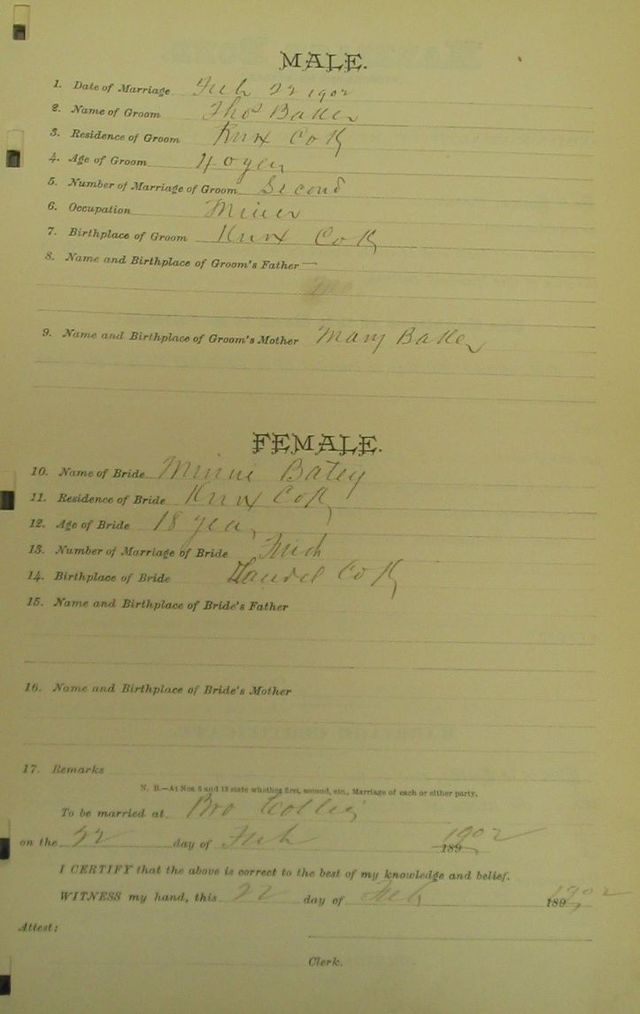 MALE.
1. Date of Marriage Feb 22 1902
2. Name of Groom Thos Baker
3. Residence of Groom Knox Co Ky
4. Age of Groom 40 year
5. Number of Marriage of Groom Second
6. Occupation Miner
7. Birthplace of Groom Knox Co Ky
8. Name and Birthplace of Groom's Father —
9. Name and Birthplace of Groom's Mother Mary Baker
FEMALE.
10. Name of Bride Minnie Batey
11. Residence of Bride Knox Co Ky
12. Age of Bride 18 year
13. Number of Marriage of Bride First
14. Birthplace of Bride Laurel Co Ky
15. Name and Birthplace of Bride's Father
16. Name and Birthplace of Bride's Mother
17. Remarks
N. B.—At Nos 5 and 13 state whether first, second, etc., Marriage of each or either party.
To be married at Bro
on the 22 day of Feb 189 1902
I CERTIFY that the above is correct to the best of my knowledge and belief.
WITNESS my hand, this 22 day of Feb 189 1902
Attest:
Clerk.